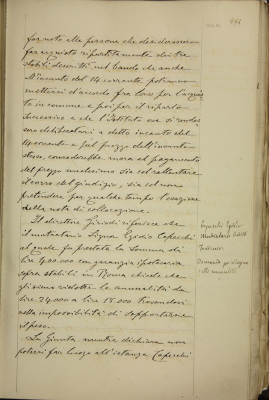 far noto alle persone che desiderassero
far acquisto ripartitamente dei tre
stabili descritti nel bando che anche
all'incanto del 14 corrente potranno
mettersi d'accordo fra loro per l'acqui-
sto in comune e poi per il riparto
successivo e che l'Istituto ove si
deliberatari a detto incanto del
14 corrente e sul prezzo dell'incanto
stesso, concederebbe mora al pagamento
del prezzo medesimo sia col rallentare
il corso del giudizio, sia col non
pretendere per qualche tempo l'esazione
della nota di collocazione.
Il direttore riferisce che
il mutuatario Signor Egidio Capecchi
al quale fu prestata la somma di
lire 400.000 con garanzia ipotecaria
sopra stabili in Roma chiede che
gli sia ridotta la annualità da
lire 24.000 a lire 18.000 trovandosi
nella impossibilità di sopportarne
il peso.
La Giunta mentre dichiara non
potersi far luogo all'istanza Capecchi
Capecchi Egidio
Mutuatario
Domanda